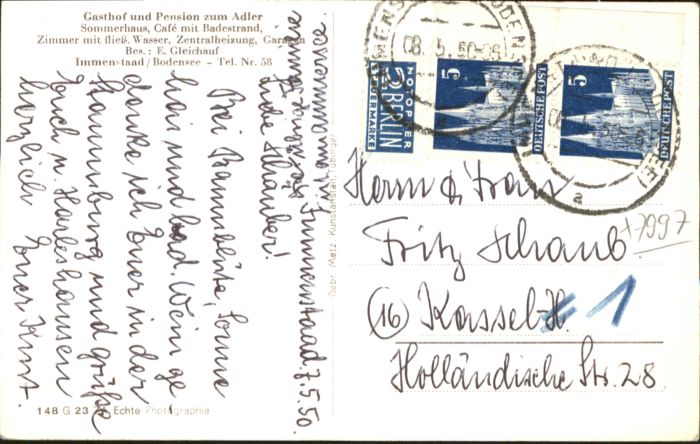 Gasthof und Pension zum Adler
Sommerhaus, Café mit Badestrand,
Zimmer mit fließ. Wasser, Zentralheizung, Garagen
Bes.: E. Gleichauf
Immenstaad/Bodensee - Tel. Nr. 58
Immenstaad. 7.5.50.
Liebe Schauber!
Bei Baumblüte, Sonne
hais und bad. Wein ge
denke ich Euer in der
Hammsburg und grüße
Euch u. Harleshausen
herzlich Euer Kurt.
148 G 23 Echte Photographie
Gebr. Metz, Kunstanstalt, Tübingen
NOTOPFER
2 BERLIN
STEUERMARKE
5
DEUTSCHE POST
5
DEUTSCHE POST
08.5.50
Herrn & Frau
Fritz Schaub
+7997
(16) Kassel-H. 1
Holländische Str. 28.